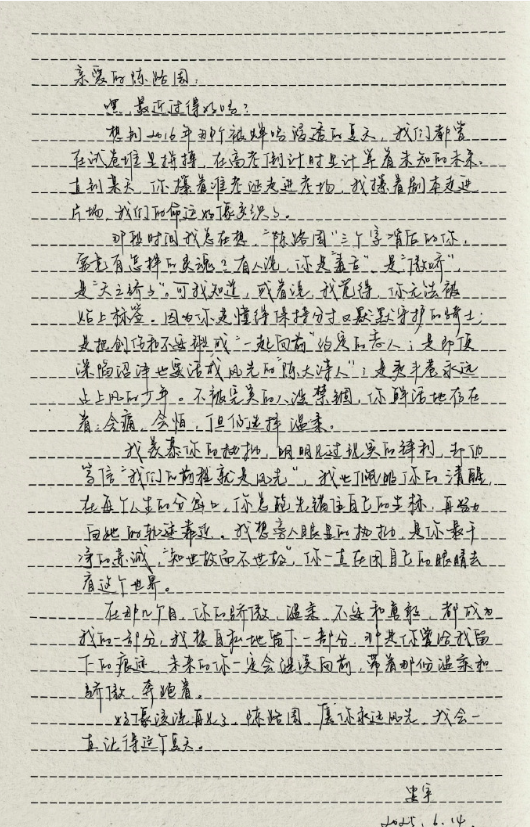 亲爱的陈路周：
嘿，最近过得好吗？
想到2016年那个被蝉鸣浸透的夏天，我们都曾
在试卷堆里拼搏，在高考倒计时里计算着未知的未来。
直到某天，你攥着准考证走进考场；我攥着剧本走进
片场，我们的命运好像交织了。
那段时间我总在想，“陈路周”三个字背后的你，
究竟有怎样的灵魂？有人说，你是“ ”是“傲娇”，
是“天之骄子”。可我知道，或者说，我觉得，你无法被
贴上标签。因为你是懂得保持分寸又默默守护的骑士；
是把创伤和不安 成“一起向前”约定的恋人；是即便
深陷沼泽也要活成风光的“陈大诗人”；是 永远
上风的少年。不被完美的人设禁锢，你鲜活地存在
着：会痛，会怕，但仍选择温柔。
我羡慕你的炽热，明明见过现实的锋利，却仍
笃信“我们的前程就是风光”，我也佩服你的清醒，
在每个人生的分岔口，你总能先锚住自己的坐标，再努力
向她的轨迹靠近。我想旁人眼里的执拗，是你最干
净的赤诚，“知世故而不世故”，你一直在用自己的眼睛去
看这个世界。
在那几个月，你的骄傲、温柔、不安和勇敢，都成为
我的一部分，我想自私地留下一部分，那是你曾给我留
下的痕迹，未来的你一定会继续向前，带着那份温柔和
骄傲，奔跑着。
好像该说再见了，陈路周，愿你永远风光，我会一
直记得这个夏天。
2025.6.14.